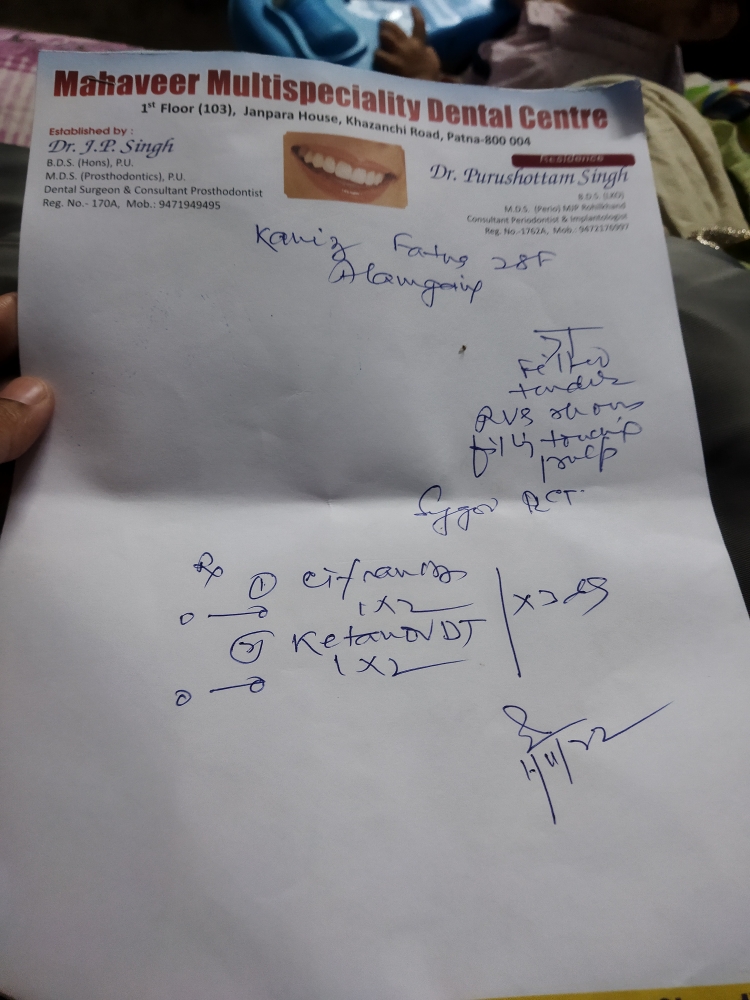 Mahaveer Multispeciality Dental Centre
1st Floor (103), Janpara House, Khazanchi Road, Patna-800 004
Established by :
Dr. J.P. Singh
B.D.S. (Hons), P.U.
M.D.S. (Prosthodontics), P.U.
Dental Surgeon & Consultant Prosthodontist
Reg. No.- 170A, Mob.: 9471949495
Residence
Dr. Purushottam Singh
B.D.S. (LKO)
M.D.S. (Perio) MJP Rohilkhand
Consultant Periodontist & Implantologist
Reg. No.-1762A, Mob.: 9472176997
Kaniz Fatma 28F
Alamganj
Filled
tender
RVG shows
filling touching
pulp
RCT.
Rx ①
1 X 2
② Ketanov DT
1 X 2